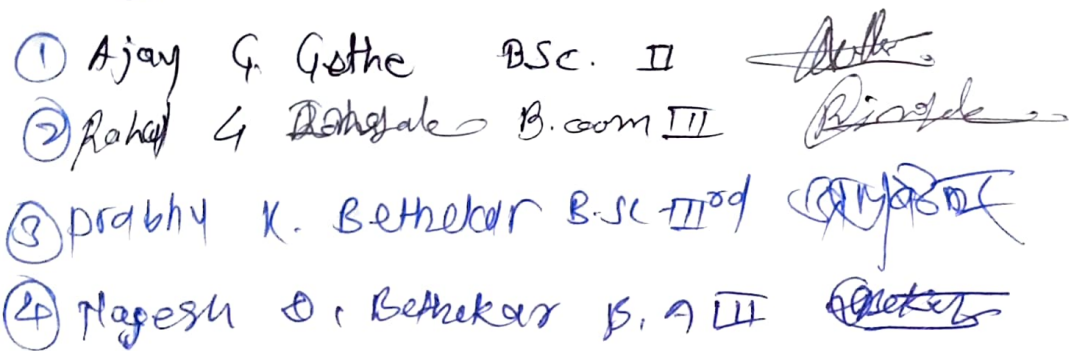 ① Ajay G. Gothe BSc. II
② Rahul G B.com III
③ Prabhu K. Bethekar B.Sc IIIrd
④ Nagesh O. Bethekar B.A III